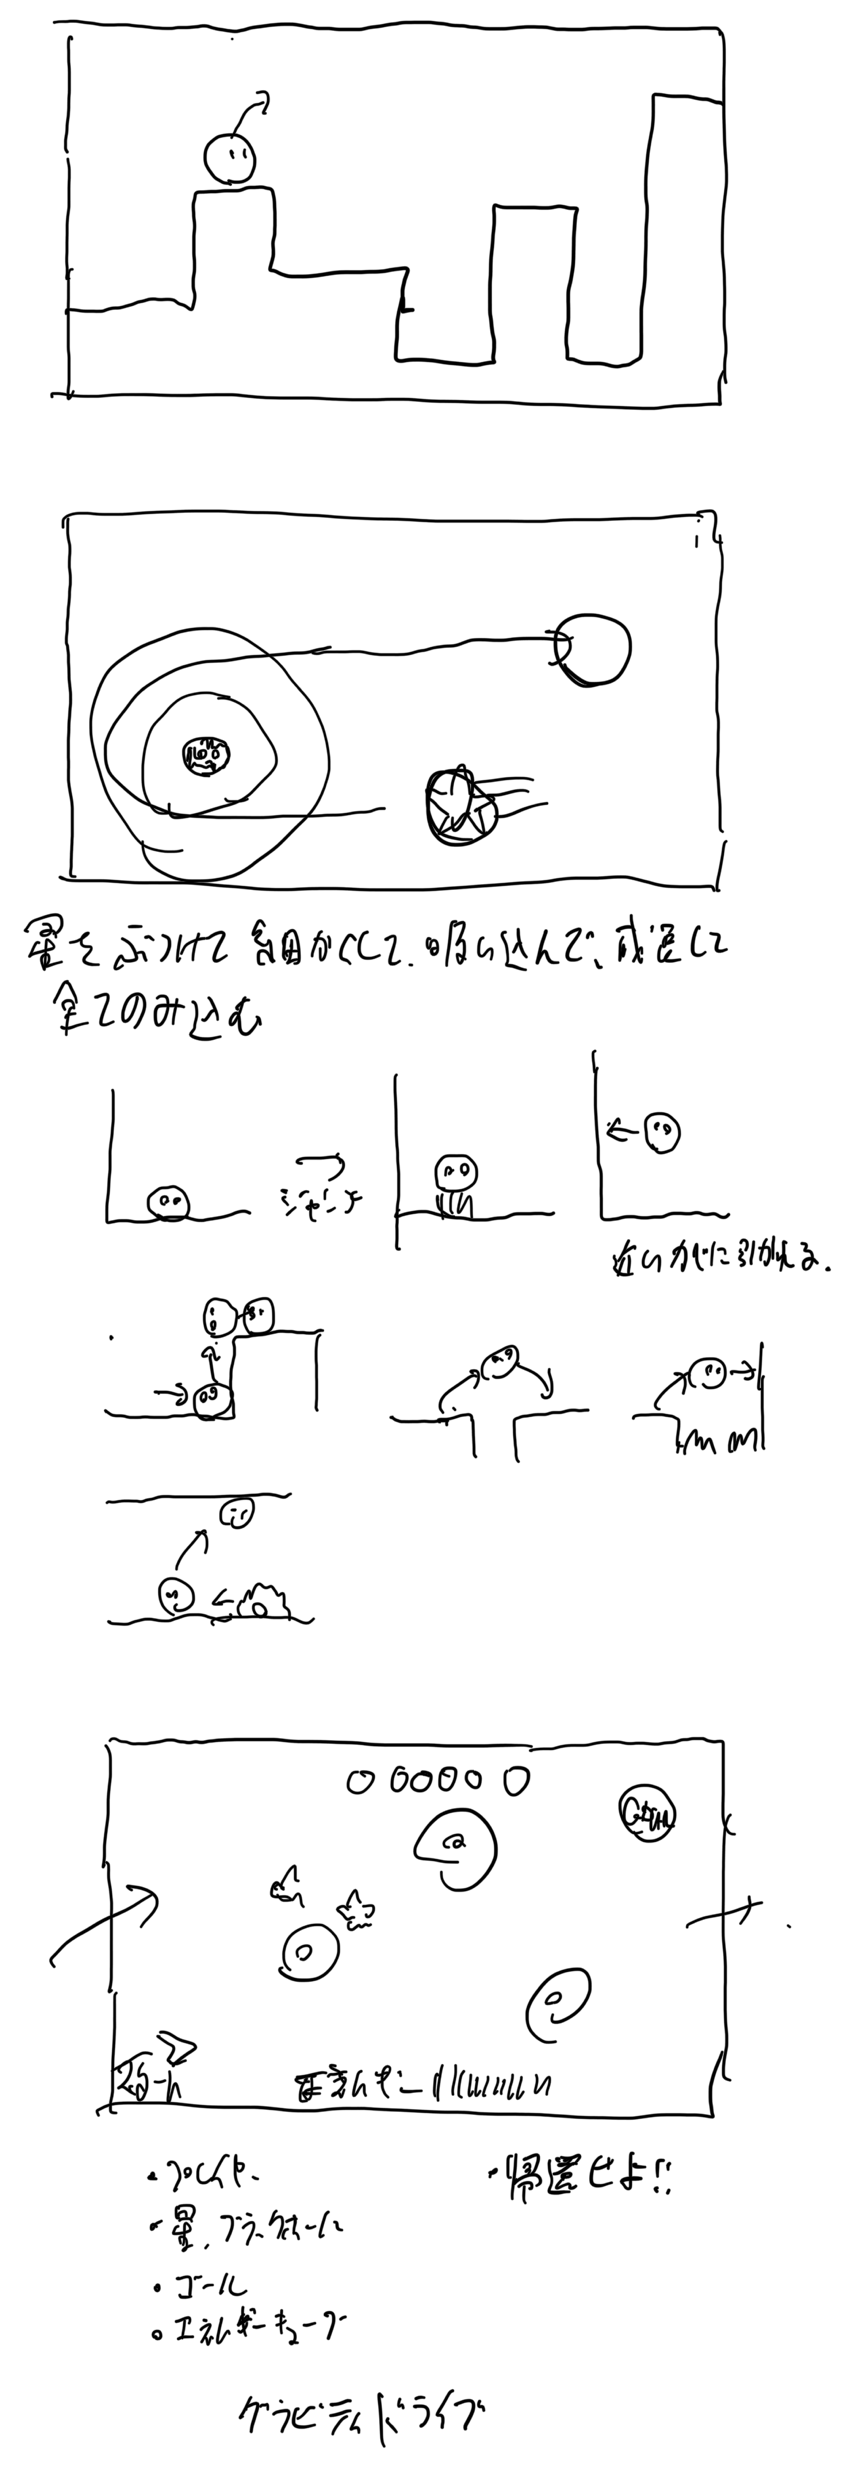 星をぶつけて細かくして、吸い込んで、成長して
全てのみ込む
ジャンプ
近いかべに引かれる.
スタート
エネルギー
・プレイヤー
・帰還せよ!!
・星、ブラックホール
・ゴール
・エネルギーキューブ
グラビティドライブ